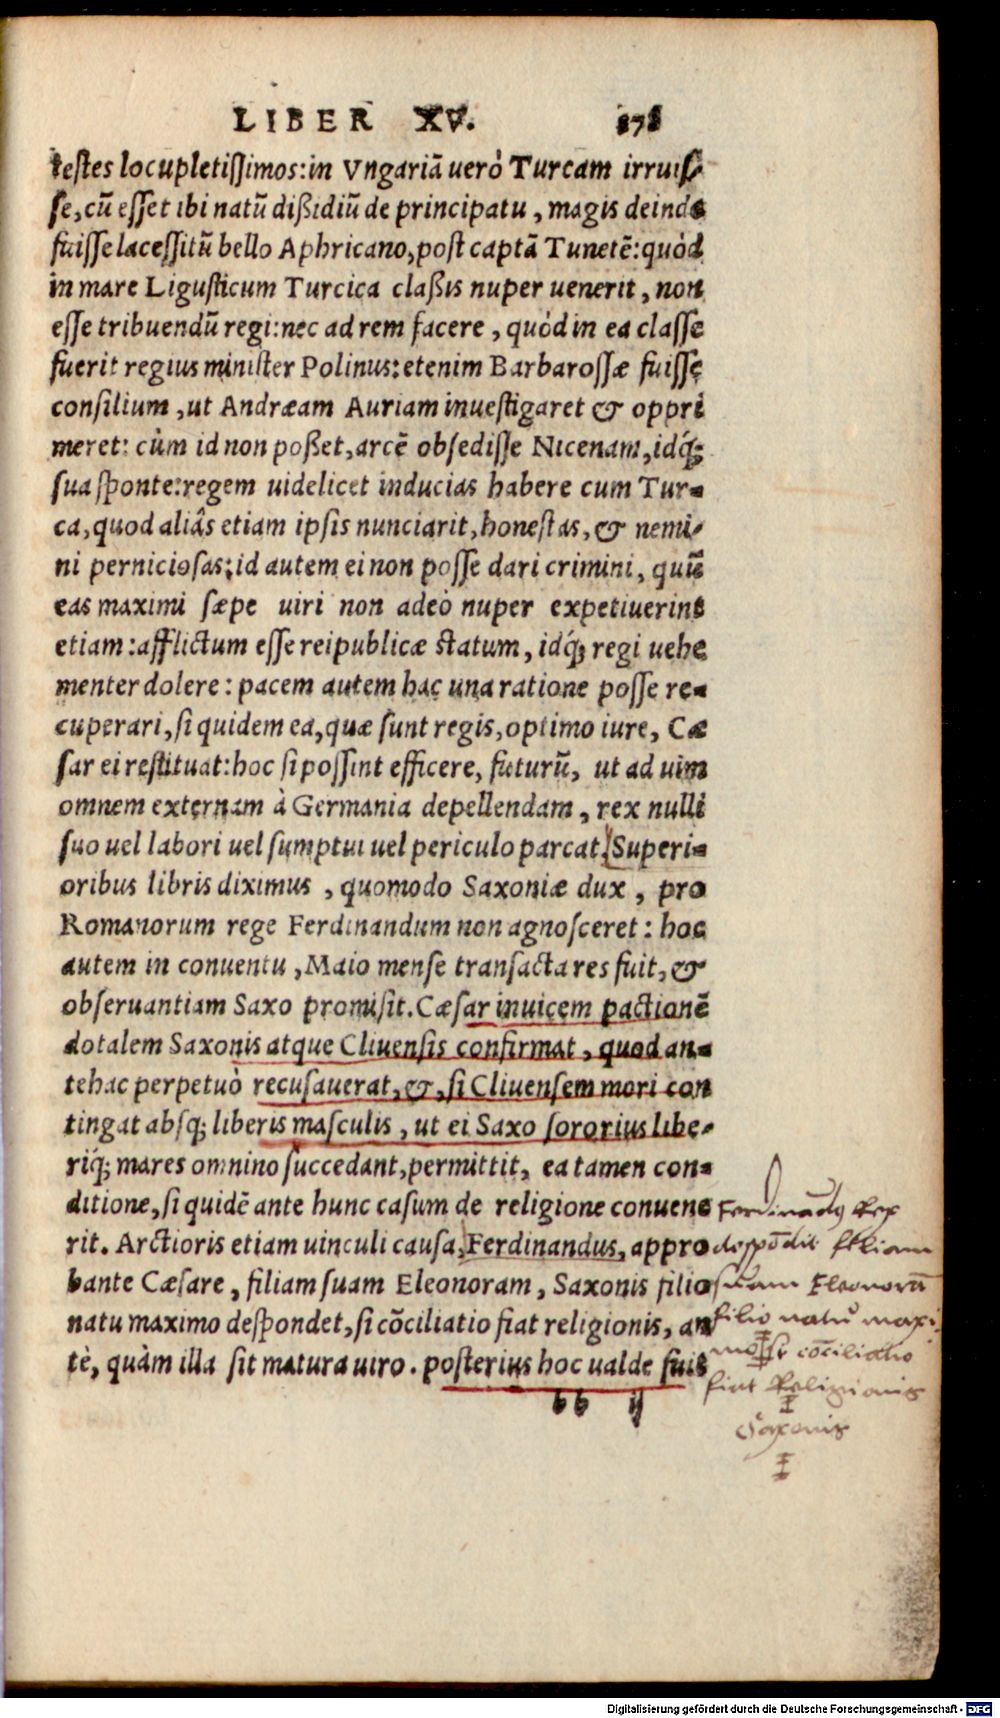 LIBER XV. 378
testes locupletissimos: in Vngariã uerò Turcam irruis-
se, cũ esset ibi natũ dißidiũ de principatu, magis deinde
fuisse lacessitũ bello Aphricano, post captã Tunetẽ: quòd
in mare Ligusticum Turcica claßis nuper uenerit, non
esse tribuendũ regi: nec ad rem facere, quòd in ea classe
fuerit regius minister Polinus: etenim Barbarossæ fuisse
consilium, ut Andræam Auriam inuestigaret & oppri
meret: cùm id non poßet, arcẽ obsedisse Nicenam, idq́;
sua sponte: regem uidelicet inducias habere cum Tur-
ca, quod aliâs etiam ipsis nunciarit, honestas, & nemi-
ni perniciosas; id autem ei non posse dari crimini, quũ
eas maximi sæpe uiri non adeò nuper expetiuerint
etiam: afflictum esse reipublicæ statum, idq́; regi uehe
menter dolere: pacem autem hac una ratione posse re-
cuperari, si quidem ea, quæ sunt regis, optimo iure, Cæ
sar ei restituat: hoc si possint efficere, futurũ, ut ad uim
omnem externam à Germania depellendam, rex nulli
suo uel labori uel sumptui uel periculo parcat. Superi-
oribus libris diximus, quomodo Saxoniæ dux, pro
Romanorum rege Ferdinandum non agnosceret: hoc
autem in conuentu, Maio mense transacta res fuit, &
obseruantiam Saxo promisit. Cæsar inuicem pactionẽ
dotalem Saxonis atque Cliuensis confirmat, quod an-
tehac perpetuò recusauerat, &, si Cliuensem mori con
tingat absq; liberis masculis, ut ei Saxo sororius libe-
riq́; mares omnino succedant, permittit, ea tamen con-
ditione, si quidẽ ante hunc casum de religione conuene
rit. Arctioris etiam uinculi causa, Ferdinandus, appro
bante Cæsare, filiam suam Eleonoram, Saxonis filio
natu maximo despondet, si cõciliatio fiat religionis, an
tè, quàm illa sit matura uiro. posterius hoc ualde fuit
bb ij
Ferdinãdq Rex
despõdit filiam
suam Eleonorã
filio natu maxi
mo si cõciliatio
fiat Religionis
Saxonis